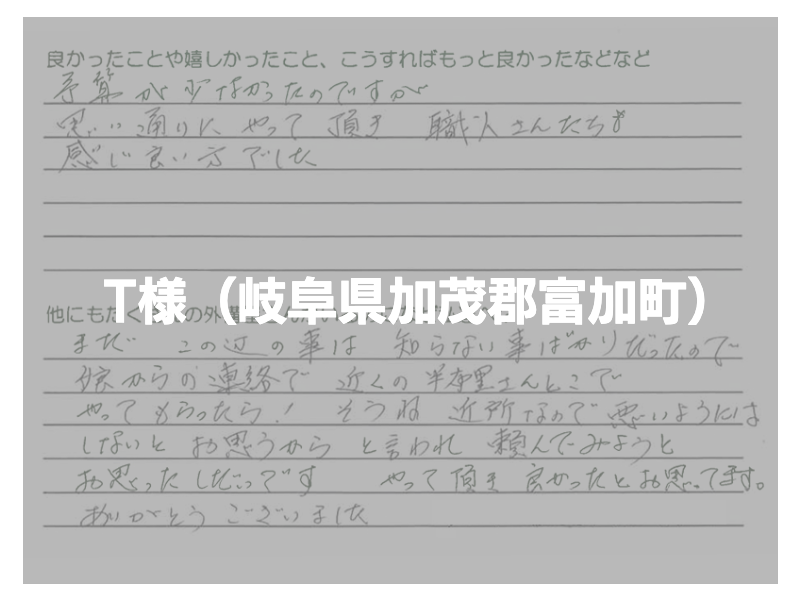 良かったことや嬉しかったこと、こうすればもっと良かったなどなど
予算が少なかったのですが
思い通りに やって 頂き 職人さんたちも
感じ良い方でした
T様（岐阜県加茂郡富加町）
他にもたく の外構
まだ この辺の事は 知らない事ばかりだったので
嫁からの連絡で 近くの 半布里さんとこで
やって もらったら！ そうね 近所なので 悪いようには
しないと お思うから と言われ 頼んでみようと
お思った しだいです やって頂き 良かったとお思ってます。
ありがとう ございました